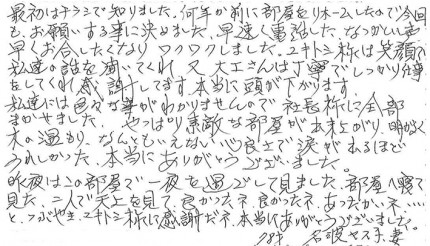 最初はチラシで知りました。何年か前に部屋をリホームしたので今回
も、お願いする事に決めました。早速く電話した。なつかしい声
早くお会いしたくなりワクワクしました。ユキトシ様は笑顔で
私達の話を聞いてくれ 又 大工さんは丁寧でしっかり仕事
をしてくれ感謝してます。本当に頭が下がります。
私達には色々な事がわかりませんので社長様に全部
まかせました。やっぱり素敵な部屋が出来上がり、明るく
木の温もり、なんともいえない心良さで涙があるほど
うれしかった。本当にありがとうございました。
昨夜はこの部屋で一夜を過ごして見ました。部屋へ寝て
見た。二人で天上を見て、良かったネ、良かったネ、あったかいネ……
と、つぶやきユキトシ様に感謝だネ、本当にありがとうございました。